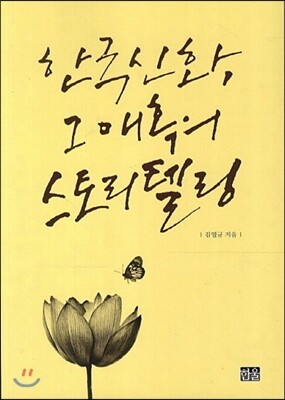 한국신화,
그 매혹의
스토리텔링
| 김열규 지음 |
한울